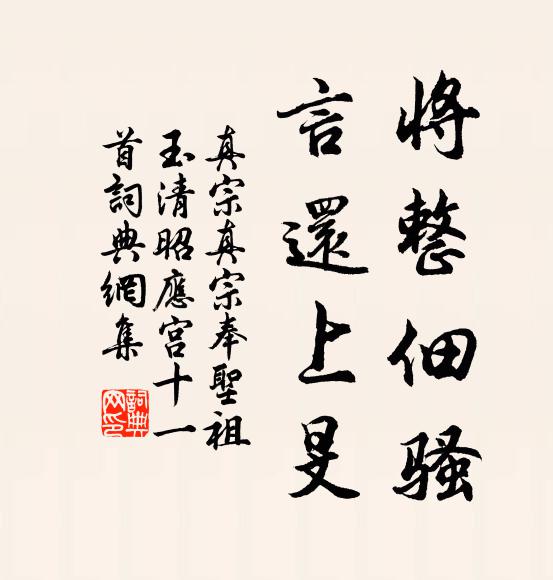 將整佃騷
言還上旻
真宗真宗奉聖祖
玉清昭應宮十一
首詞典網集
詞典
网印